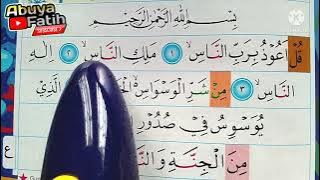 Abuya
Fatih
بِسْمِ اللّٰهِ الرَّحْمٰنِ الرَّحِيْمِ
قُلْ اَعُوْذُ بِرَبِّ النَّاسِ ١ مَلِكِ النَّاسِ ٢ اِلٰهِ
النَّاسِ ٣ مِنْ شَرِّ الْوَسْوَاسِ الَّذِيْ
يُوَسْوِسُ فِيْ صُدُوْرِ
مِنَ الْجِنَّةِ وَالنَّ